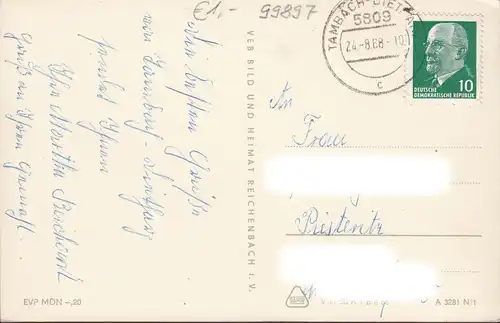 €1,- 99897
Die besten Grüße
von Tambach-Dietharz
sendet Ihnen
Ihre Martha
Gruß an Ihren Gemahl.
EVP MDN -,20
VEB BILD UND HEIMAT REICHENBACH I. V.
TAMBACH-DIET
5809
24.-8.68-10
c
DEUTSCHE
DEMOKRATISCHE REPUBLIK
10
An
Frau
A 3281 N/1